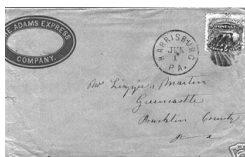 THE ADAMS EXPRESS
COMPANY.
HARRISBURG
JUN
1
PA.
Mrs Lizzie S Martin
Greencastle
Franklin County
Pa